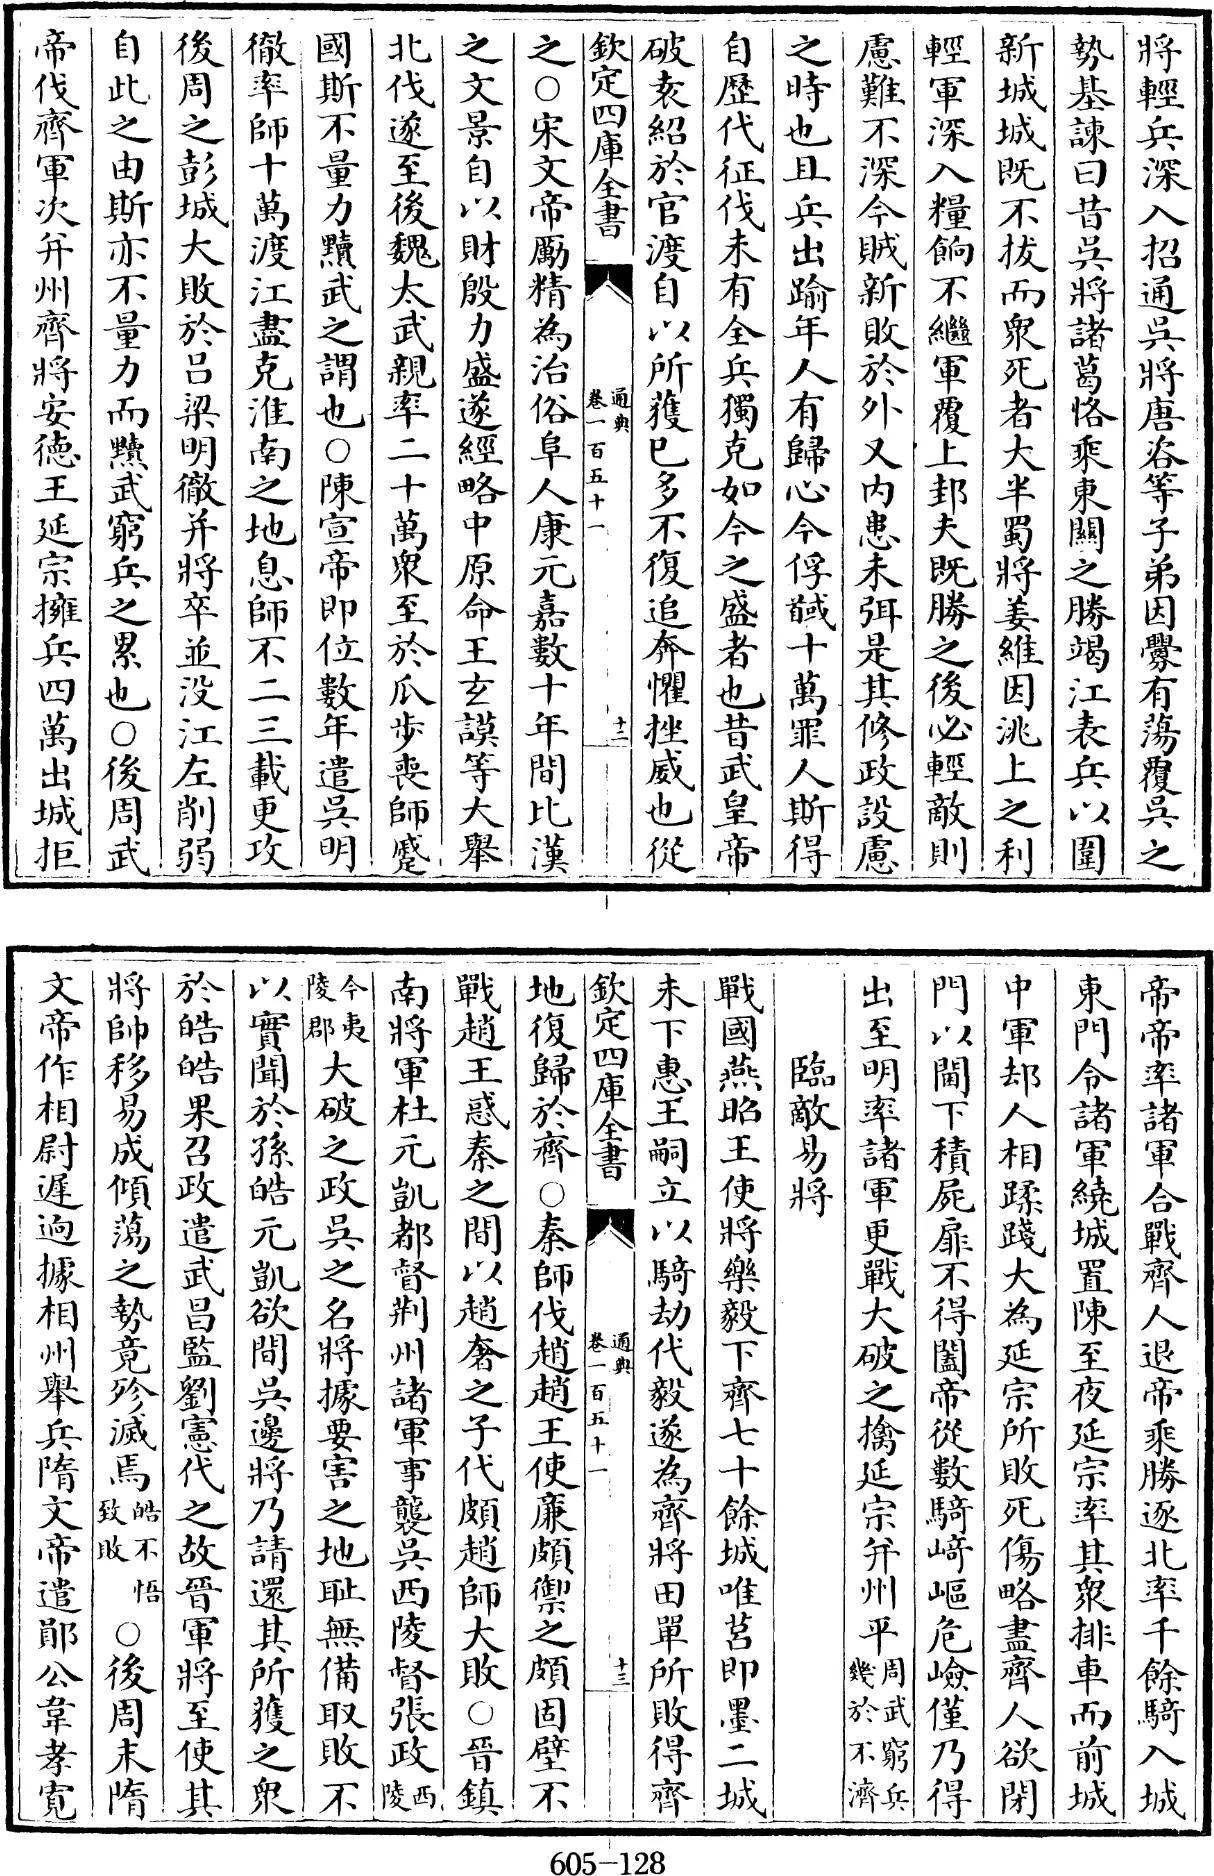 將輕兵深入招通吳將唐咨等子弟因釁有蕩覆吳之
勢基諫曰昔吳將諸葛恪乘東關之勝竭江表兵以圍
新城城既不拔而衆死者大半蜀將姜維因洮上之利
輕軍深入糧餉不繼軍覆上邽夫既勝之後必輕敵則
慮難不深今賊新敗於外又内患未弭是其修政設慮
之時也且兵出踰年人有歸心今俘馘十萬罪人斯得
自歷代征伐未有全兵獨克如今之盛者也昔武皇帝
破袁紹於官渡自以所獲已多不復追奔懼挫威也從
欽定四庫全書
通典
卷一百五十一
十二
之○宋文帝勵精為治俗阜人康元嘉數十年間比漢
之文景自以財殷力盛遂經略中原命王玄謨等大舉
北伐遂至後魏太武親率二十萬衆至於瓜步喪師蹙
國斯不量力黷武之謂也○陳宣帝即位數年遣吳明
徹率師十萬渡江盡克淮南之地息師不二三載更攻
後周之彭城大敗於吕梁明徹并將卒並没江左削弱
自此之由斯亦不量力而黷武窮兵之累也○後周武
帝伐齊軍次并州齊將安德王延宗擁兵四萬出城拒
帝帝率諸軍合戰齊人退帝乘勝逐北率千餘騎入城
東門令諸軍繞城置陳至夜延宗率其衆排車而前城
中軍却人相蹂踐大為延宗所敗死傷略盡齊人欲閉
門以閫下積屍扉不得闔帝從數騎崎嶇危嶮僅乃得
出至明率諸軍更戰大破之擒延宗并州平周武窮兵幾於不濟
臨敵易將
戰國燕昭王使將樂毅下齊七十餘城唯莒即墨二城
未下惠王嗣立以騎劫代毅遂為齊將田單所敗得齊
欽定四庫全書
通典
卷一百五十一
十三
地復歸於齊○秦師伐趙趙王使廉頗禦之頗固壁不
戰趙王惑秦之間以趙奢之子代頗趙師大敗○晉鎮
南將軍杜元凱都督荆州諸軍事襲吳西陵督張政西陵
今夷陵郡大破之政吳之名將據要害之地耻無備取敗不
以實聞於孫皓元凱欲間吳邊將乃請還其所獲之衆
於皓皓果召政遣武昌監劉憲代之故晉軍將至使其
將帥移易成傾蕩之勢竟殄滅焉皓不悟致敗○後周末隋
文帝作相尉遲迥據相州舉兵隋文帝遣鄖公韋孝寛
605-128